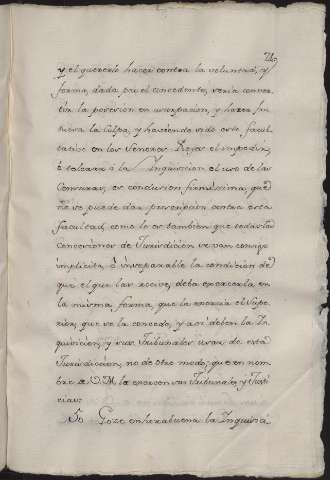 y el quererlo hacer contra la voluntad, y
forma, dada por el concedente, sería conver
tir la posesion en usurpacion, y hacer
la culpa, y haviendo sido este facul
tativo en los Señores Reyes el impedir,
ó tolerar á la Inquisicion el uso de las
Censuras, es conclusion firmisima, que
no se puede dar prescripcion contra esta
facultad, como lo es tambien que todas las
concesiones de Jurisdiccion llevan consigo
implicita, ó inseparable la condicion de
que el que las recive, deba exercerla en
la misma forma, que la exercia el Supe
rior, que se la concede, y asi deben la In
quisicion, y sus Tribunales usar de esta
Jurisdiccion, no de otro modo, que en nom
bre de V. M. la exercen sus Tribunales, y Justi
cias.
50 Goze enhorabuena la Inquisici